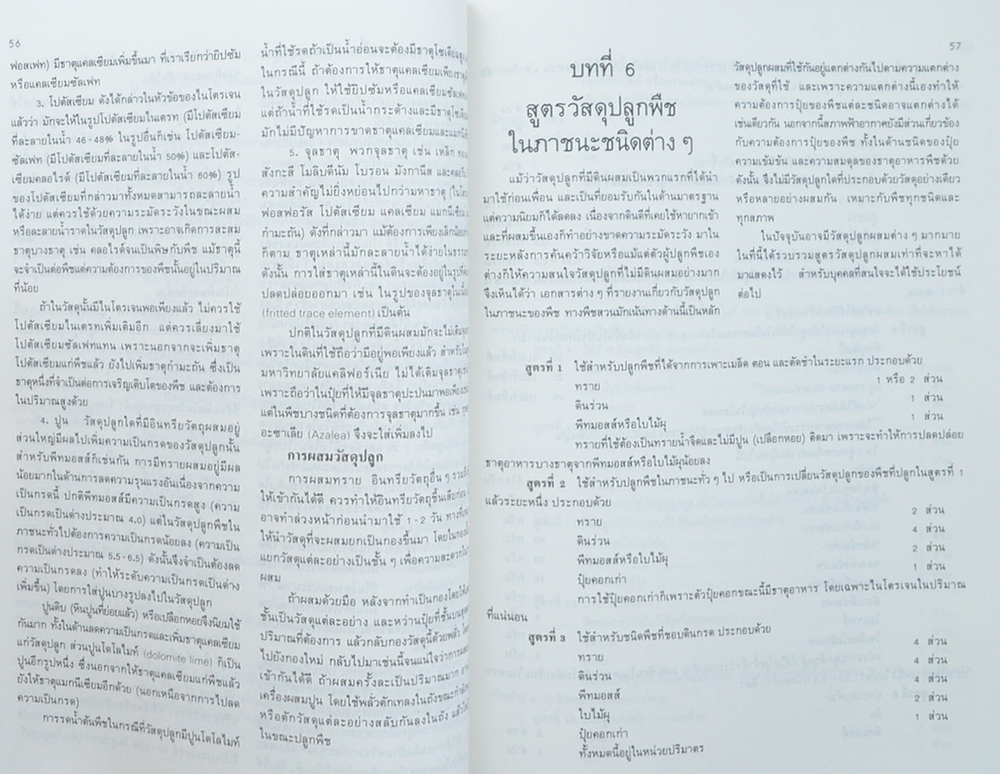 56
ฟอสเฟท) มีธาตุแคลเซียมเพิ่มขึ้นมา ที่เราเรียกว่ายิปซัม
หรือแคลเซียมซัลเฟท
3. โปตัสเซียม ดังได้กล่าวในหัวข้อของไนโตรเจน
แล้วว่า มักจะให้ในรูปโปตัสเซียมไนเตรท (มีโปตัสเซียม
ที่ละลายในน้ำ 46-48% ในรูปอื่นก็เช่น โปตัสเซียม-
ซัลเฟท (มีโปตัสเซียมที่ละลายในน้ำ 50%) และโปตัส-
เซียมคลอไรด์ (มีโปตัสเซียมที่ละลายในน้ำ 60%) รูป
ของโปตัสเซียมที่กล่าวมาทั้งหมดสามารถละลายน้ำ
ได้ง่าย แต่ควรใช้ด้วยความระมัดระวังในขณะผสม
หรือละลายน้ำราดในวัสดุปลูก เพราะอาจเกิดการสะสม
ธาตุบางธาตุ เช่น คลอไรด์จนเป็นพิษกับพืช แม้ธาตุนี้
จะจำเป็นต่อพืชแต่ความต้องการของพืชนั้นอยู่ในปริมาณ
ที่น้อย
ถ้าในวัสดุนั้นมีไนโตรเจนพอเพียงแล้ว ไม่ควรใช้
โปตัสเซียมไนเตรทเพิ่มเติมอีก แต่ควรเลี่ยงมาใช้
โปตัสเซียมซัลเฟทแทน เพราะนอกจากจะเพิ่มธาตุ
โปตัสเซียมแก่พืชแล้ว ยังได้เพิ่มธาตุกำมะถัน ซึ่งเป็น
ธาตุหนึ่งที่จำเป็นต่อการเจริญเติบโตของพืช และต้องการ
ในปริมาณสูงด้วย
4. ปูน วัสดุปลูกใดที่มีอินทรียวัตถุผสมอยู่
ส่วนใหญ่มีผลไปเพิ่มความเป็นกรดของวัสดุปลูกนั้น
สำหรับพีทมอสส์ก็เช่นกัน การมีทรายผสมอยู่มีผล
น้อยมากในด้านการลดความรุนแรงอันเนื่องจากความ
เป็นกรดนี้ ปกติพีทมอสส์มีความเป็นกรดสูง (ความ
เป็นกรดเป็นด่างประมาณ 4.0) แต่ในวัสดุปลูกพืชใน
ภาชนะทั่วไปต้องการความเป็นกรดน้อยลง (ความเป็น
กรดเป็นด่างประมาณ 5.5-6.5) ดังนั้นจึงจำเป็นต้องลด
ความเป็นกรดลง (ทำให้ระดับความเป็นกรดเป็นด่าง
เพิ่มขึ้น) โดยการใส่ปูนบางรูปลงไปในวัสดุปลูก
ปูนดิบ (หินปูนที่ย่อยแล้ว) หรือเปลือกหอยจึงนิยมใช้
กันมาก ทั้งในด้านลดความเป็นกรดและเพิ่มธาตุแคลเซียม
แก่วัสดุปลูก ส่วนปูนโดโลไมท์ (dolomite lime) ก็เป็น
ปูนอีกรูปหนึ่ง ซึ่งนอกจากให้ธาตุแคลเซียมแก่พืชแล้ว
ยังให้ธาตุแมกนีเซียมอีกด้วย (นอกเหนือจากการไปลด
ความเป็นกรด)
การรดน้ำต้นพืชในกรณีที่วัสดุปลูกมีปูนโดโลไมท์
น้ำที่ใช้รดถ้าเป็นน้ำอ่อนจะต้องมีธาตุโซเดียม
ในกรณีนี้ ถ้าต้องการให้ธาตุแคลเซียมเพียง
ในวัสดุปลูก ให้ใช้ยิปซัมหรือแคลเซียม
แต่ถ้าน้ำที่ใช้รดเป็นน้ำกระด้างและมีธาตุ
มักไม่มีปัญหาการขาดธาตุแคลเซียมและแมกนี
5. จุลธาตุ พวกจุลธาตุ เช่น เหล็ก
สังกะสี โมลิบดีนัม โบรอน มังกานีส
ความสำคัญไม่ยิ่งหย่อนไปกว่ามหาธาตุ
ฟอสฟอรัส โปตัสเซียม แคลเซียม แมกนีเซียม
กำมะถัน) ดังที่กล่าวมา แม้ต้องการเพียงเล็กน้อย
ก็ตาม ธาตุเหล่านี้มักละลายน้ำได้ง่ายใน
ดังนั้น การใส่ธาตุเหล่านี้ในดินจะต้องอยู่ในรูป
ปลดปล่อยออกมา เช่น ในรูปของจุลธาตุ
(fritted trace element) เป็นต้น
ปกติในวัสดุปลูกที่มีดินผสมมักจะไม่เติม
เพราะในดินที่ใช้ถือว่ามีอยู่พอเพียงแล้ว สำหรับ
มหาวิทยาลัยแคลิฟอร์เนีย ไม่ได้เติมจุลธาตุ
เพราะถือว่าในปุ๋ยที่ให้มีจุลธาตุปะปนมาพอเพียง
แต่ในพืชบางชนิดที่ต้องการจุลธาตุมากขึ้น เช่น
อะซาเลีย (Azalea) จึงจะใส่เพิ่มลงไป
การผสมวัสดุปลูก
การผสมทราย อินทรียวัตถุอื่น ๆ
ให้เข้ากันได้ดี ควรทำให้อินทรียวัตถุชื้นเสียก่อน
อาจทำล่วงหน้าก่อนนำมาใช้ 1-2 วัน
ให้นำวัสดุที่จะผสมยกเป็นกองขึ้นมา โดยในกอง
แยกวัสดุแต่ละอย่างเป็นชั้น ๆ เพื่อความสะดวก
ผสม
ถ้าผสมด้วยมือ หลังจากทำเป็นกองโดยให้
ชั้นเป็นวัสดุแต่ละอย่าง และหว่านปุ๋ยที่ชั้นบน
ปริมาณที่ต้องการ แล้วกลับกองวัสดุนี้ด้วยพลั่ว
ไปยังกองใหม่ กลับไปมาเช่นนี้จนแน่ใจว่า
เข้ากันได้ดี ถ้าผสมครั้งละเป็นปริมาณมาก
เครื่องผสมปูน โดยใช้พลั่วตักเทลงในถังขณะ
หรือตักวัสดุแต่ละอย่างสลับกันลงในถัง
ในขณะปลูกพืช
57
บทที่ 6
สูตรวัสดุปลูกพืช
ในภาชนะชนิดต่าง ๆ
แม้ว่าวัสดุปลูกที่มีดินผสมเป็นพวกแรกที่ได้นำ
มาใช้ก่อนเพื่อน และเป็นที่ยอมรับกันในด้านมาตรฐาน
แต่ความนิยมก็ได้ลดลง เนื่องจากดินดีที่เคยใช้หายากเข้า
และที่ผสมขึ้นเองก็ทำอย่างขาดความระมัดระวัง มาใน
ระยะหลังการค้นคว้าวิจัยหรือแม้แต่ตัวผู้ปลูกพืชเอง
ต่างก็ให้ความสนใจวัสดุปลูกที่ไม่มีดินผสมอย่างมาก
จึงเห็นได้ว่า เอกสารต่าง ๆ ที่รายงานเกี่ยวกับวัสดุปลูก
ในภาชนะของพืช ทางพืชสวนมักเน้นทางด้านนี้เป็นหลัก
วัสดุปลูกผสมที่ใช้กันอยู่แตกต่างกันไปตามความแตกต่าง
ของวัสดุที่ใช้ และเพราะความแตกต่างนี้เองทำให้
ความต้องการปุ๋ยของพืชแต่ละชนิดอาจแตกต่างได้
เช่นเดียวกัน นอกจากนี้สภาพฟ้าอากาศยังมีส่วนเกี่ยวข้อง
กับความต้องการปุ๋ยของพืช ทั้งในด้านชนิดของปุ๋ย
ความเข้มข้น และความสมดุลของธาตุอาหารพืชด้วย
ดังนั้น จึงไม่มีวัสดุปลูกใดที่ประกอบด้วยวัสดุอย่างเดียว
หรือหลายอย่างผสมกัน เหมาะกับพืชทุกชนิดและ
ทุกสภาพ
ในปัจจุบันอาจมีวัสดุปลูกผสมต่าง ๆ มากมาย
ในที่นี้ได้รวบรวมสูตรวัสดุปลูกผสมเท่าที่จะหาได้
มาแสดงไว้ สำหรับบุคคลที่สนใจจะได้ใช้ประโยชน์
ต่อไป
สูตรที่ 1 ใช้สำหรับปลูกพืชที่ได้จากการเพาะเมล็ด ตอน และตัดชำในระยะแรก ประกอบด้วย
ทราย 1 หรือ 2 ส่วน
ดินร่วน 1 ส่วน
พีทมอสส์หรือใบไม้ผุ 1 ส่วน
ทรายที่ใช้ต้องเป็นทรายน้ำจืดและไม่มีปูน (เปลือกหอย) ติดมา เพราะจะทำให้การปลดปล่อย
ธาตุอาหารบางธาตุจากพีทมอสส์หรือใบไม้ผุน้อยลง
สูตรที่ 2 ใช้สำหรับปลูกพืชในภาชนะทั่ว ๆ ไป หรือเป็นการเปลี่ยนวัสดุปลูกของพืชที่ปลูกในสูตรที่ 1
แล้วระยะหนึ่ง ประกอบด้วย
ทราย 2 ส่วน
ดินร่วน 4 ส่วน
พีทมอสส์หรือใบไม้ผุ 2 ส่วน
ปุ๋ยคอกเก่า 1 ส่วน
การใช้ปุ๋ยคอกเก่าก็เพราะตัวปุ๋ยคอกขณะนี้มีธาตุอาหาร โดยเฉพาะไนโตรเจนในปริมาณ
ที่แน่นอน
สูตรที่ 3 ใช้สำหรับชนิดพืชที่ชอบดินกรด ประกอบด้วย
ทราย 4 ส่วน
ดินร่วน 4 ส่วน
พีทมอสส์ 4 ส่วน
ใบไม้ผุ 2 ส่วน
ปุ๋ยคอกเก่า 1 ส่วน
ทั้งหมดนี้อยู่ในหน่วยปริมาตร